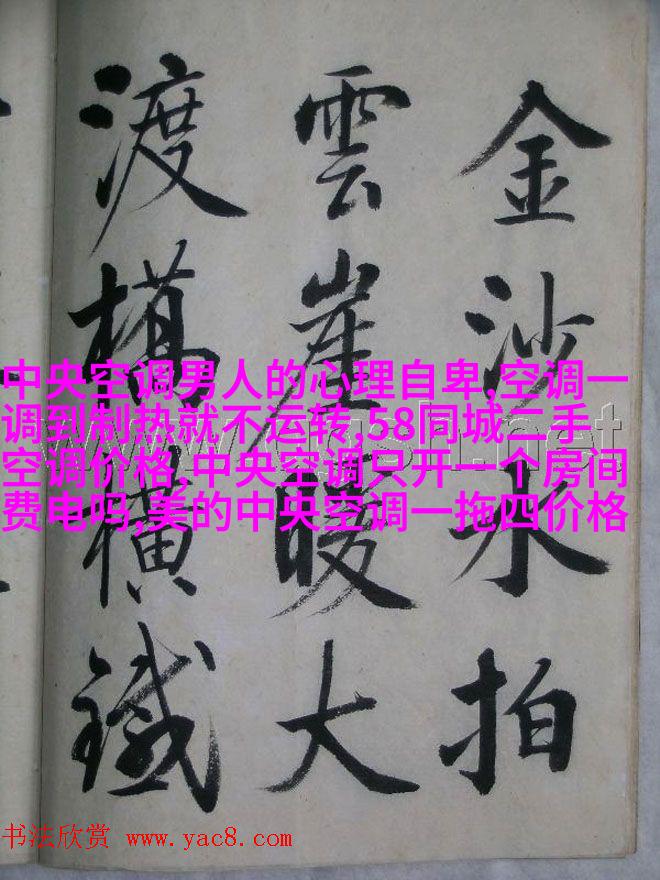 金沙水拍
雲崖暖大
渡橋橫鐵
中央空调男人的心理自卑,空调一
调到制热就不运转,58同城二手
空调价格,中央空调只开一个房间
费电吗,美的中央空调一拖四价格
书法欣赏 www.yac8.com